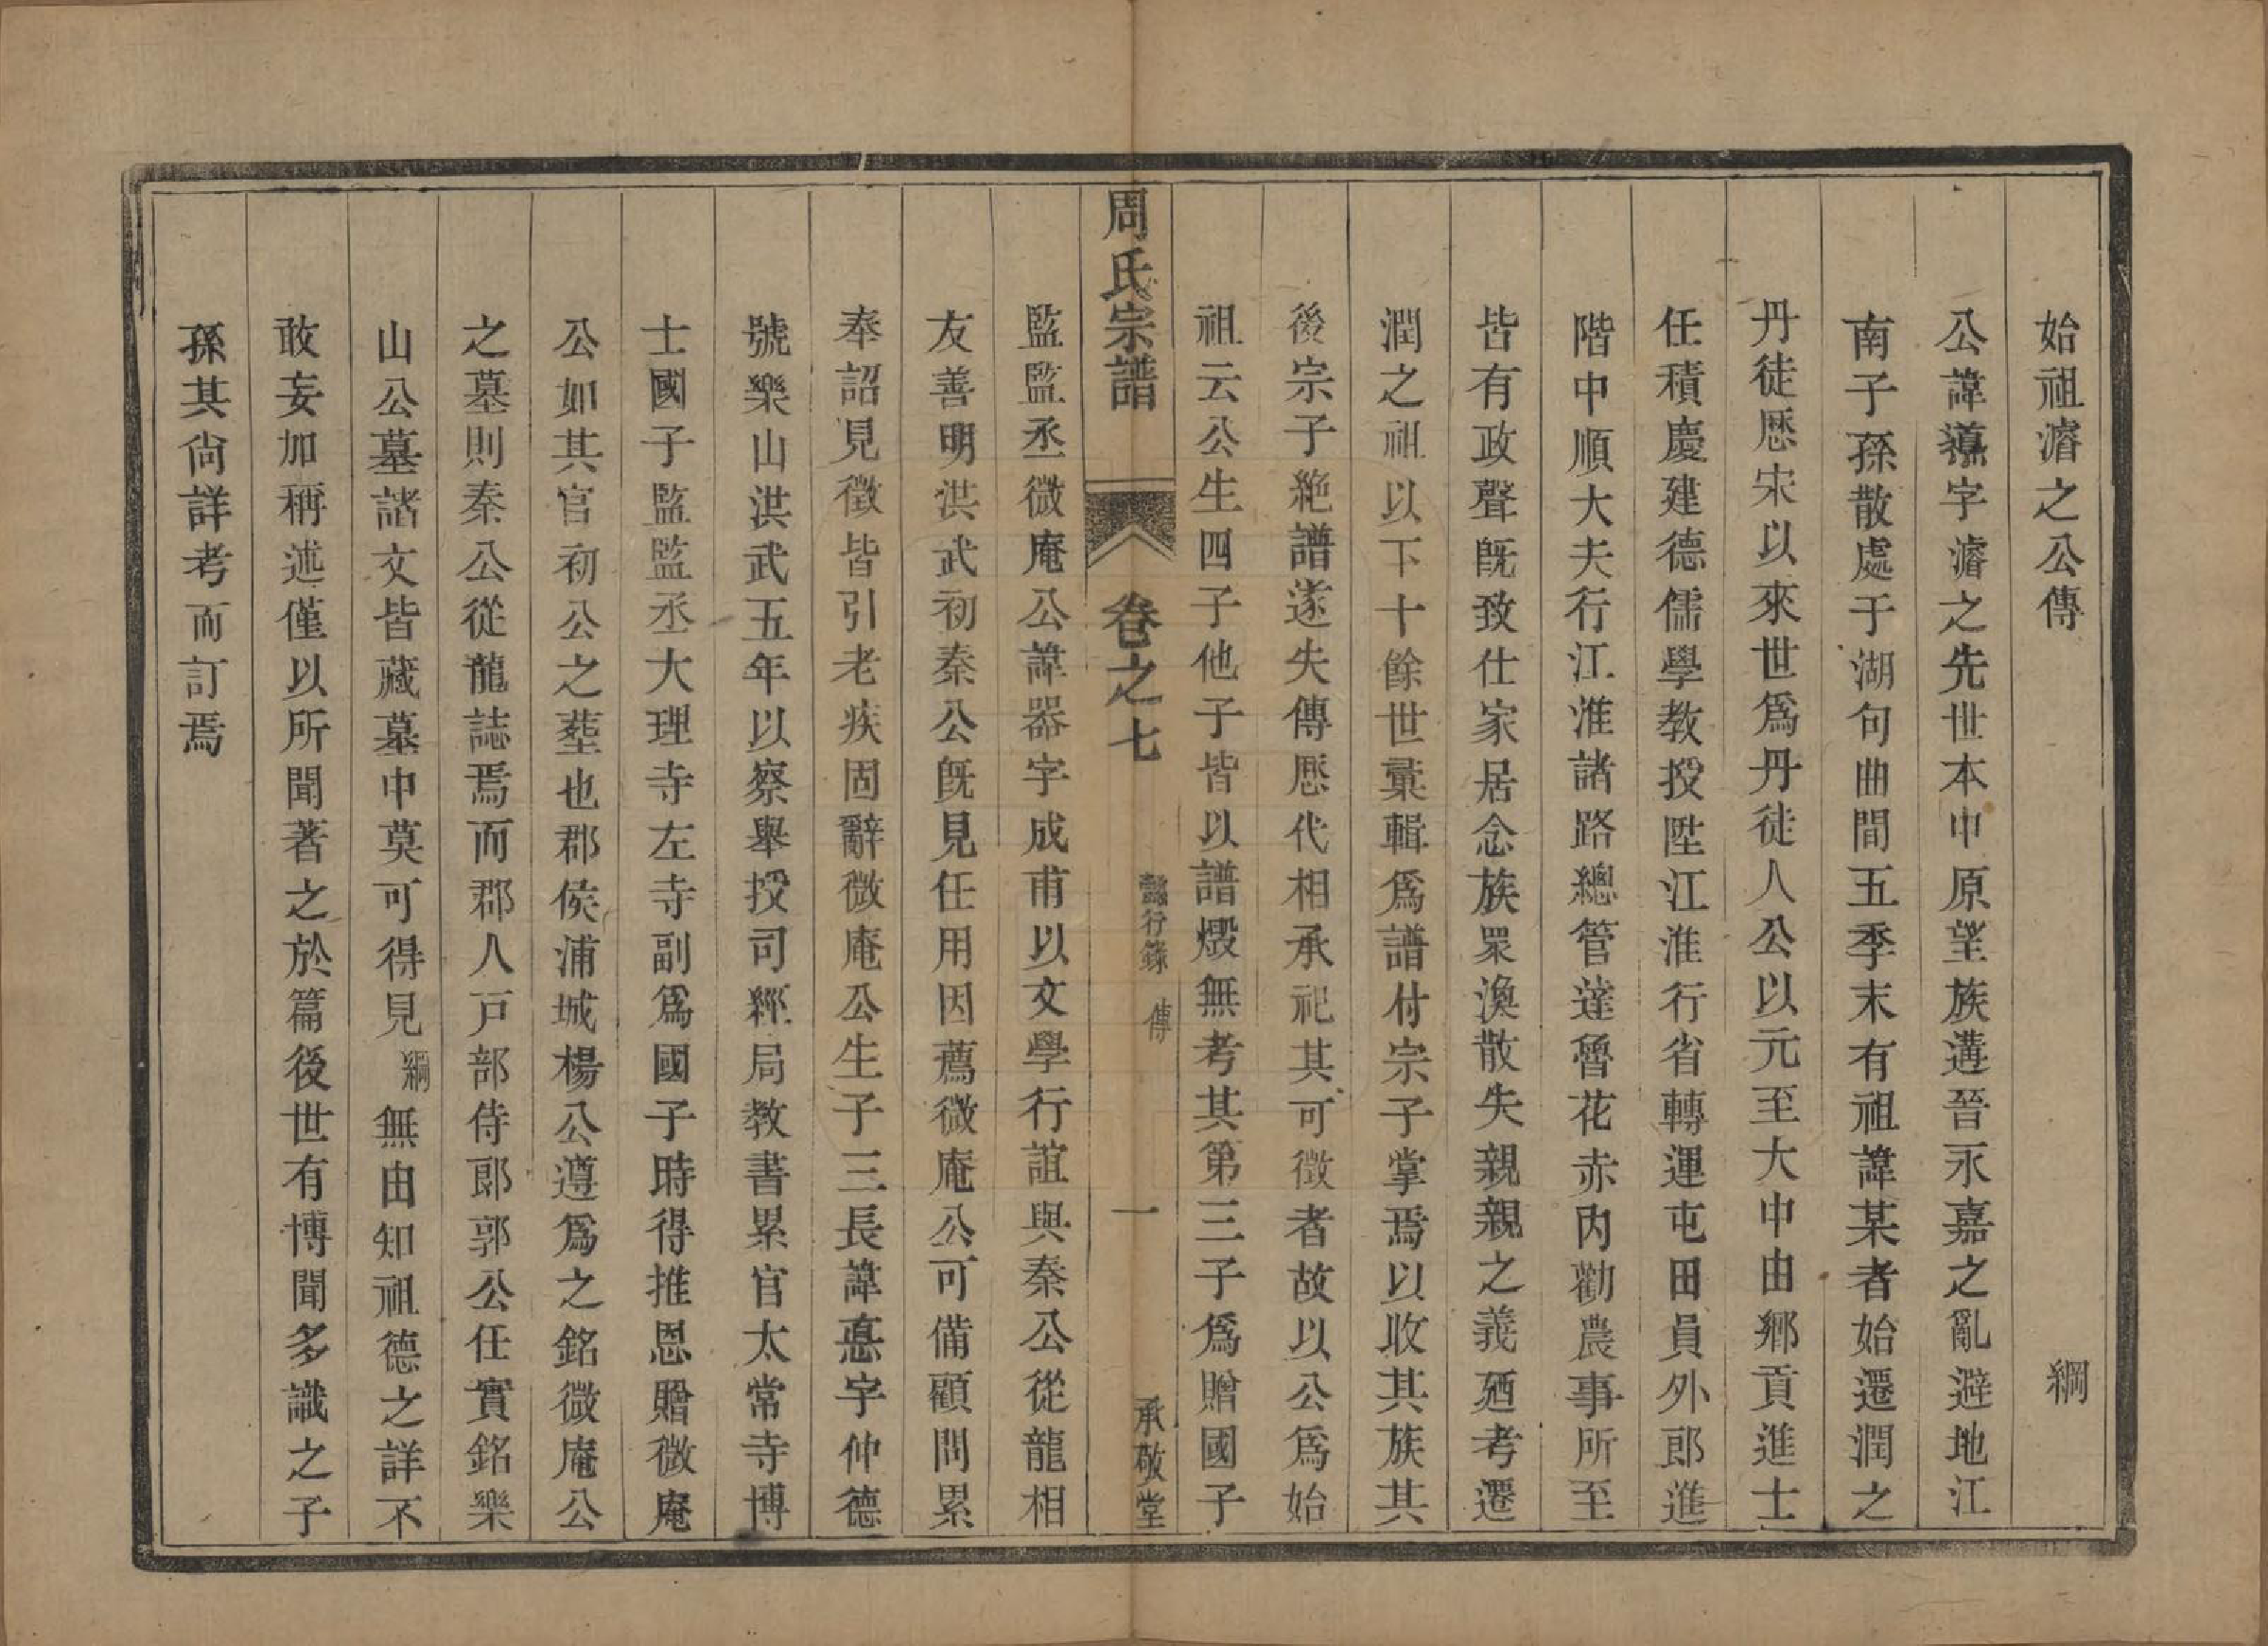 始祖濬之公傳　綱
公諱導字濬之先世本中原望族遘晉永嘉之亂避地江
南子孫散處于湖句曲間五季末有祖諱某者始遷潤之
丹徒歷宋以來世爲丹徒人公以元至大中由鄉貢進士
任積慶建德儒學教授陞江淮行省轉運屯田員外郎進
階中順大夫行江淮諸路總管達魯花赤內勸農事所至
皆有政聲既致仕家居念族衆渙散失親親之義廼考遷
潤之祖以下十餘世彙輯爲譜付宗子掌焉以收其族其
後宗子絶譜遂失傳歷代相承祀其可徵者故以公爲始
祖云公生四子他子皆以譜燬無考其第三子爲贈國子
周氏宗譜　卷之七　懿行錄　傳　一　承敬堂
監監丞微庵公諱器字成甫以文學行誼與秦公從龍相
友善明洪武初秦公既見任用因薦微庵公可備顧問累
奉詔見徵皆引老疾固辭微庵公生子三長諱惪字仲德
號樂山洪武五年以察舉授司經局教書累官太常寺博
士國子監監丞大理寺左寺副爲國子時得推恩贈微庵
公如其官初公之塟也郡侯浦城楊公遵爲之銘微庵公
之墓則秦公從龍誌焉而郡人戸部侍郎郭公任實銘樂
山公墓諸文皆藏墓中莫可得見綱無由知祖德之詳不
敢妄加稱述僅以所聞著之於篇後世有博聞多識之子
孫其尙詳考而訂焉